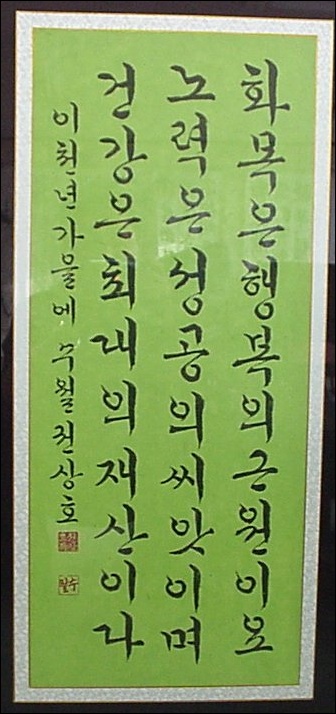 화목은행복의근원이요
노력은성공의씨앗이며
건강은최대의재산이다
이천년가을에 수월권상호